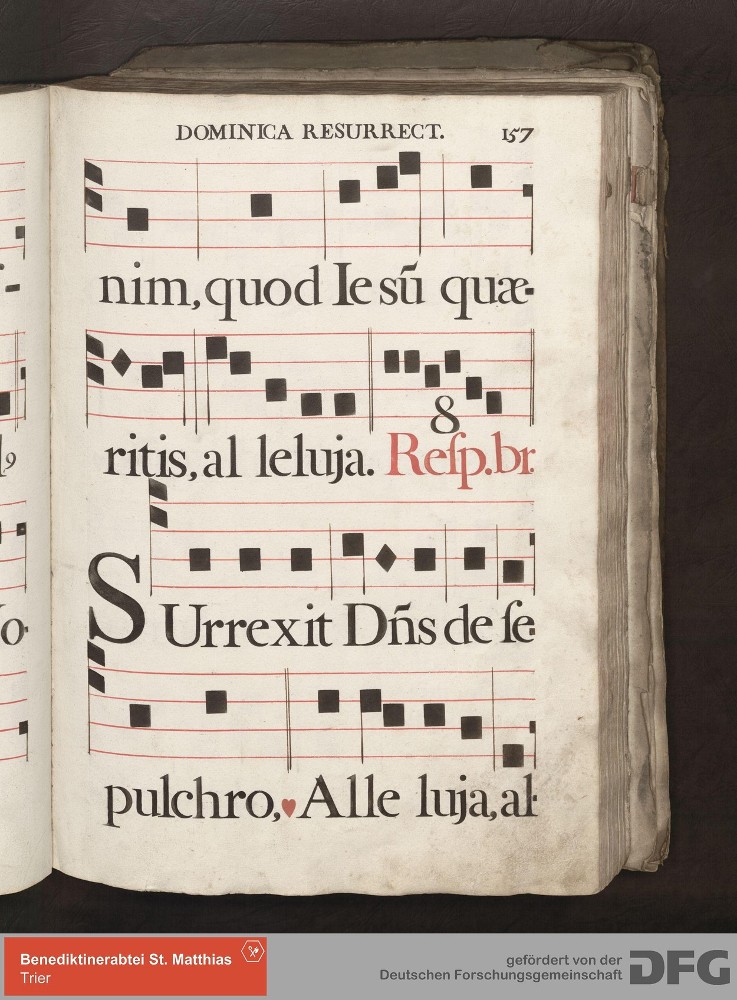 DOMINICA RESURRECT. 157
nim, quod Iesũ quæ-
8
ritis, al leluja. Reſp. br.
SUrrexit Dñs de ſe-
pulchro,♥Alle luja, al-
Benediktinerabtei St. Matthias
Trier
gefördert von der
Deutschen Forschungsgemeinschaft DFG